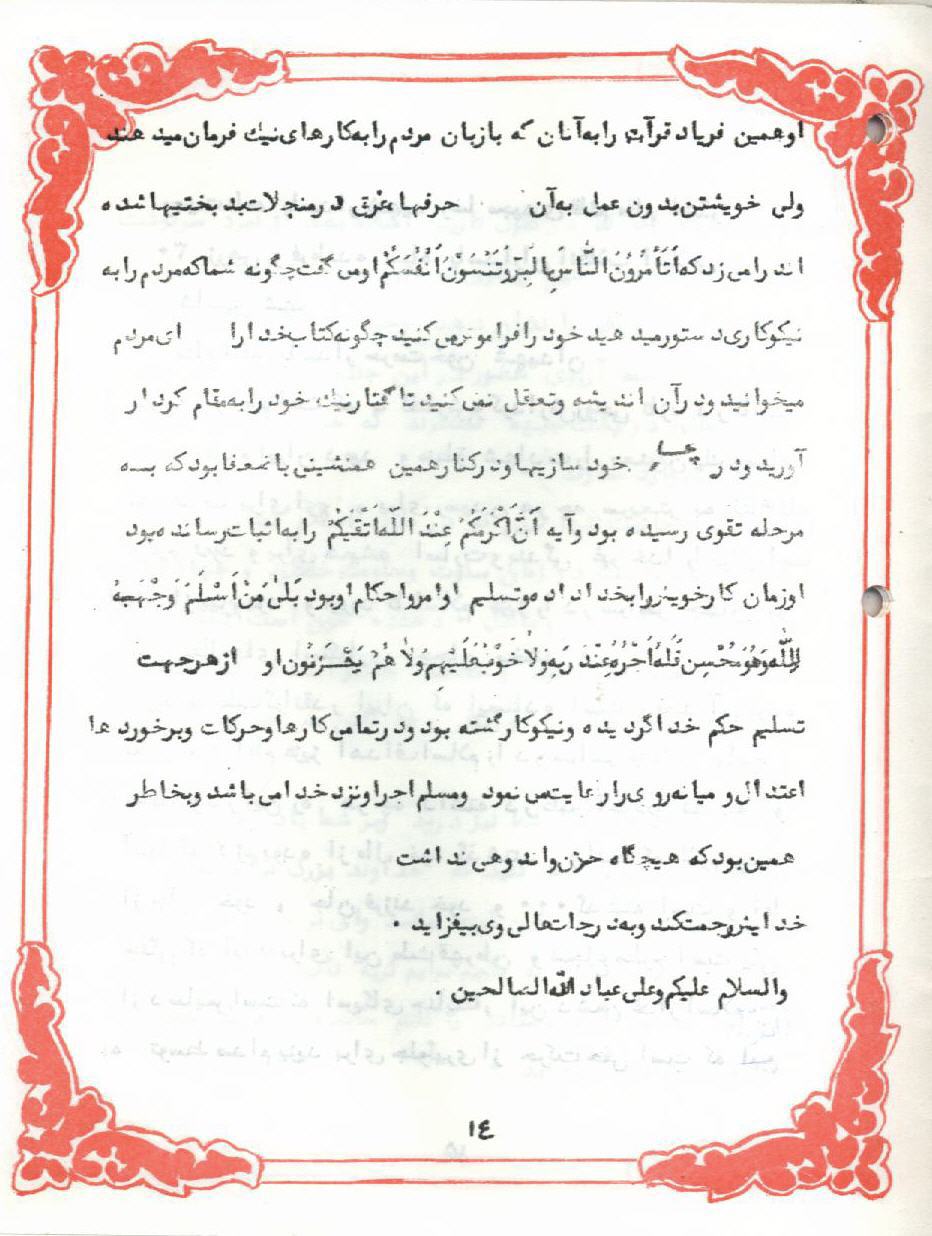 او همین فریاد قرآن را به آنان که بازبان مردم را به کارهای نیك فرمان میدهند
ولی خویشتن بدون عمل به آن حرفها غرق در منجلاب بدبختیها شده
اند را می زد که اَتَأْمُرُونَ النّٰاسَ بِالْبِرِّ وَتَنْسَوْنَ اَنْفُسَكُمْ او می گفت چگونه شما که مردم را به
نیکوکاری دستور میدهید خود را فراموش می کنید چگونه کتاب خدا را ای مردم
میخوانید و در آن اندیشه وتعقل نمی کنید تا گفتار نیك خود را به مقام کردار
آورید و در خود سازیها و در کنار همین همنشینی با ضعفا بود که بسه
مرحله تقوی رسیده بود وآیه اَنَّ اَکْرَمَکُمْ عِنْدَ اللّٰهِ اَتْقٰیکُمْ را به اثبات رسانده بود
او زمان کار خویش را بخدا داده و تسلیم اوامر و احکام او بود بَلیٰ مَنْ اَسْلَمَ وَجْهَهُ
لِلّٰهِ وَهُوَ مُحْسِن فَلَهُ اَجْرُهُ عِنْدَ رَبِّهِ وَلاٰ خَوْف عَلَيْهِم وَلاٰ هُمْ يَحْزَنُون او از هر جهت
تسلیم حکم خدا گردیده ونیکوکار گشته بود و در تمامی کارها و حرکات و برخورد ها
اعتدال و میانه روی را رعایت می نمود ومسلم اجر او نزد خدا می باشد و بخاطر
همین بود که هیچگاه حزن واندوهی نداشت
خدایش رحمت کند و به درجات عالی وی بیفزاید .
والسلام علیکم وعلی عباد اللّٰه الصالحین .
١٤